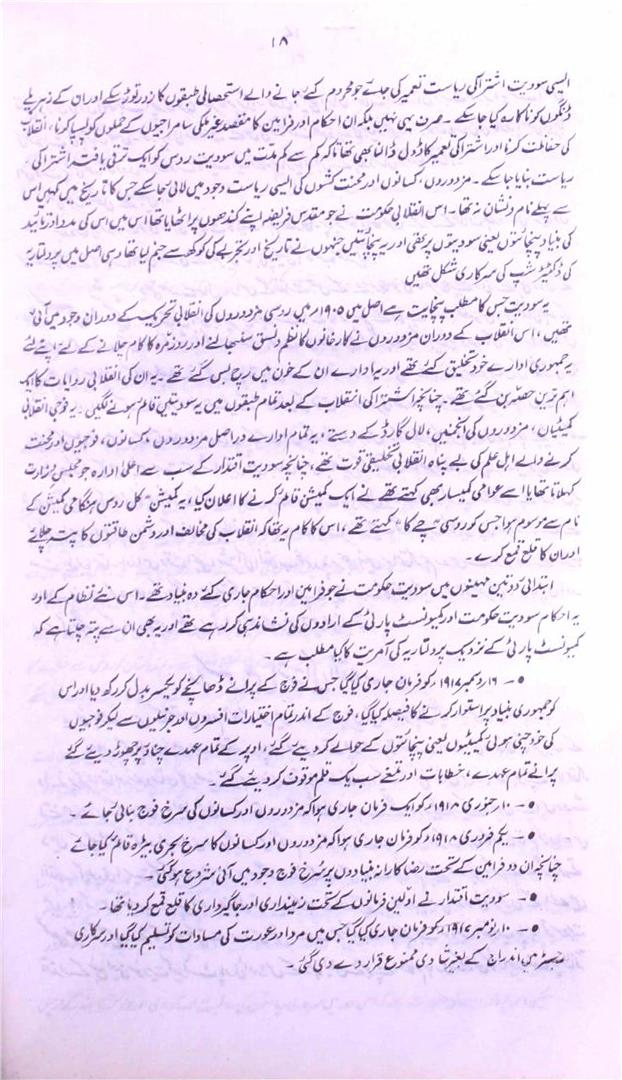 ۱۸
ایسی سودیت اشتراکی ریاست تعمیر کی جائے جو محروم کئے جانے والے استحصالی طبقوں کا زور توڑ سکے اور ان کے زہریلے
ڈنکوں کو ناکارہ کیا جا سکے۔ صرف یہی نہیں بلکہ ان احکام اور فرامین کا مقصد غیر ملکی سامراجیوں کے حملوں کو پسپا کرنا، انقلاب
کی حفاظت کرنا اور اشتراکی تعمیر کا ڈول ڈالنا بھی تھا تاکہ کم سے کم مدت میں سودیت روس کو ایک ترقی یافتہ اشتراکی
ریاست بنایا جا سکے۔ مزدوروں، کسانوں اور محنت کشوں کی ایسی ریاست وجود میں لائی جا سکے جس کا تاریخ میں کہیں اس
سے پہلے نام و نشان نہ تھا۔ اس انقلابی حکومت نے جو مقدس فریضہ اپنے کندھوں پر اٹھایا تھا اس میں اس کی مدد اور تائید
کی بنیاد پنچائتوں یعنی سودیتوں پر تھی اور یہ پنچائتیں جنہوں نے تاریخ اور تجربے کی کوکھ سے جنم لیا تھا وہی اصل میں پرولتاریہ
کی ڈکٹیٹر شپ کی سرکاری شکل تھیں
یہ سودیت جس کا مطلب پنچایت ہے اصل میں ۱۹۰۵ء میں روسی مزدوروں کی انقلابی تحریک کے دوران وجود میں آئی
تھیں، اس انقلاب کے دوران مزدوروں نے کارخانوں کا نظم و نسق سنبھالنے اور روزمرہ کا کام چلانے کے لئے اپنے لئے
یہ جمہوری ادارے خود تخلیق کئے تھے اور یہ ادارے ان کے خون میں رچ بس گئے تھے۔ یہ ان کی انقلابی روایات کا ایک
اہم ترین حصہ بن گئے تھے۔ چنانچہ اشتراکی انقلاب کے بعد تمام طبقوں میں یہ سودیتیں قائم ہونے لگیں۔ یہ فوجی انقلابی
کمیٹیاں، مزدوروں کی انجمنیں، لال گارڈ کے دستے، یہ تمام ادارے دراصل مزدوروں، کسانوں، فوجیوں اور محنت
کرنے والے اہل علم کی بے پناہ انقلابی تخلیقی قوت تھے، چنانچہ سودیت اقتدار کے سب سے اعلیٰ ادارہ جو مجلس وزارت
کہلاتا تھا یا اسے عوامی کمیسار بھی کہتے تھے نے ایک کمیشن قائم کرنے کا اعلان کیا، یہ کمیشن "کل روس ہنگامی کمیشن کے
نام سے موسوم ہوا جس کو روسی چے کا" کہتے تھے، اس کا کام یہ تھا کہ انقلاب کی مخالف اور دشمن طاقتوں کا پتہ چلائے
اور ان کا قلع قمع کرے۔
ابتدائی دو تین مہینوں میں سودیت حکومت نے جو فرامین اور احکام جاری کئے وہ بنیاد تھے، اس نئے نظام کے اور
یہ احکام سودیت حکومت اور کمیونسٹ پارٹی کے ارادوں کی نشاندہی کر رہے تھے اور یہ بھی ان سے پتہ چلتا ہے کہ
کمیونسٹ پارٹی کے نزدیک پرولتاریہ کی آمریت کا کیا مطلب ہے۔
●۔ ۱۶ دسمبر ۱۹۱۷ء کو فرمان جاری کیا گیا جس نے فوج کے پرانے ڈھانچے کو یکسر بدل کر رکھ دیا اور اس
کو جمہوری بنیاد پر استوار کرنے کا فیصلہ کیا گیا، فوج کے اندر تمام اختیارات افسروں اور جرنیلوں سے لیکر فوجیوں
کی خود چنی ہوئی کمیٹیوں یعنی پنچائتوں کے حوالے کر دیئے گئے، اوپر کے تمام عہدے چناؤ پر چھوڑ دیئے گئے
پرانے تمام عہدے، خطابات اور تمغے سب یک قلم موقوف کر دیئے گئے۔
●۔ ۱۰ جنوری ۱۹۱۸ء کو ایک فرمان جاری ہوا کہ مزدوروں اور کسانوں کی سرخ فوج بنائی جائے۔
●۔ یکم فروری ۱۹۱۸ء کو فرمان جاری ہوا کہ مزدوروں اور کسانوں کا سرخ بحری بیڑہ قائم کیا جائے
چنانچہ ان دو فرامین کے تحت رضا کارانہ بنیادوں پر سرخ فوج وجود میں آنی شروع ہو گئی۔
●۔ سودیت اقتدار نے اولین فرمانوں کے تحت زمینداری اور جاگیرداری کا قلع قمع کر دیا تھا۔
●۔ ۱۰ نومبر ۱۹۱۷ء کو فرمان جاری کیا گیا جس میں مرد اور عورت کی مساوات کو تسلیم کیا گیا اور سرکاری
رجسٹر میں اندراج کے بغیر شادی ممنوع قرار دے دی گئی۔